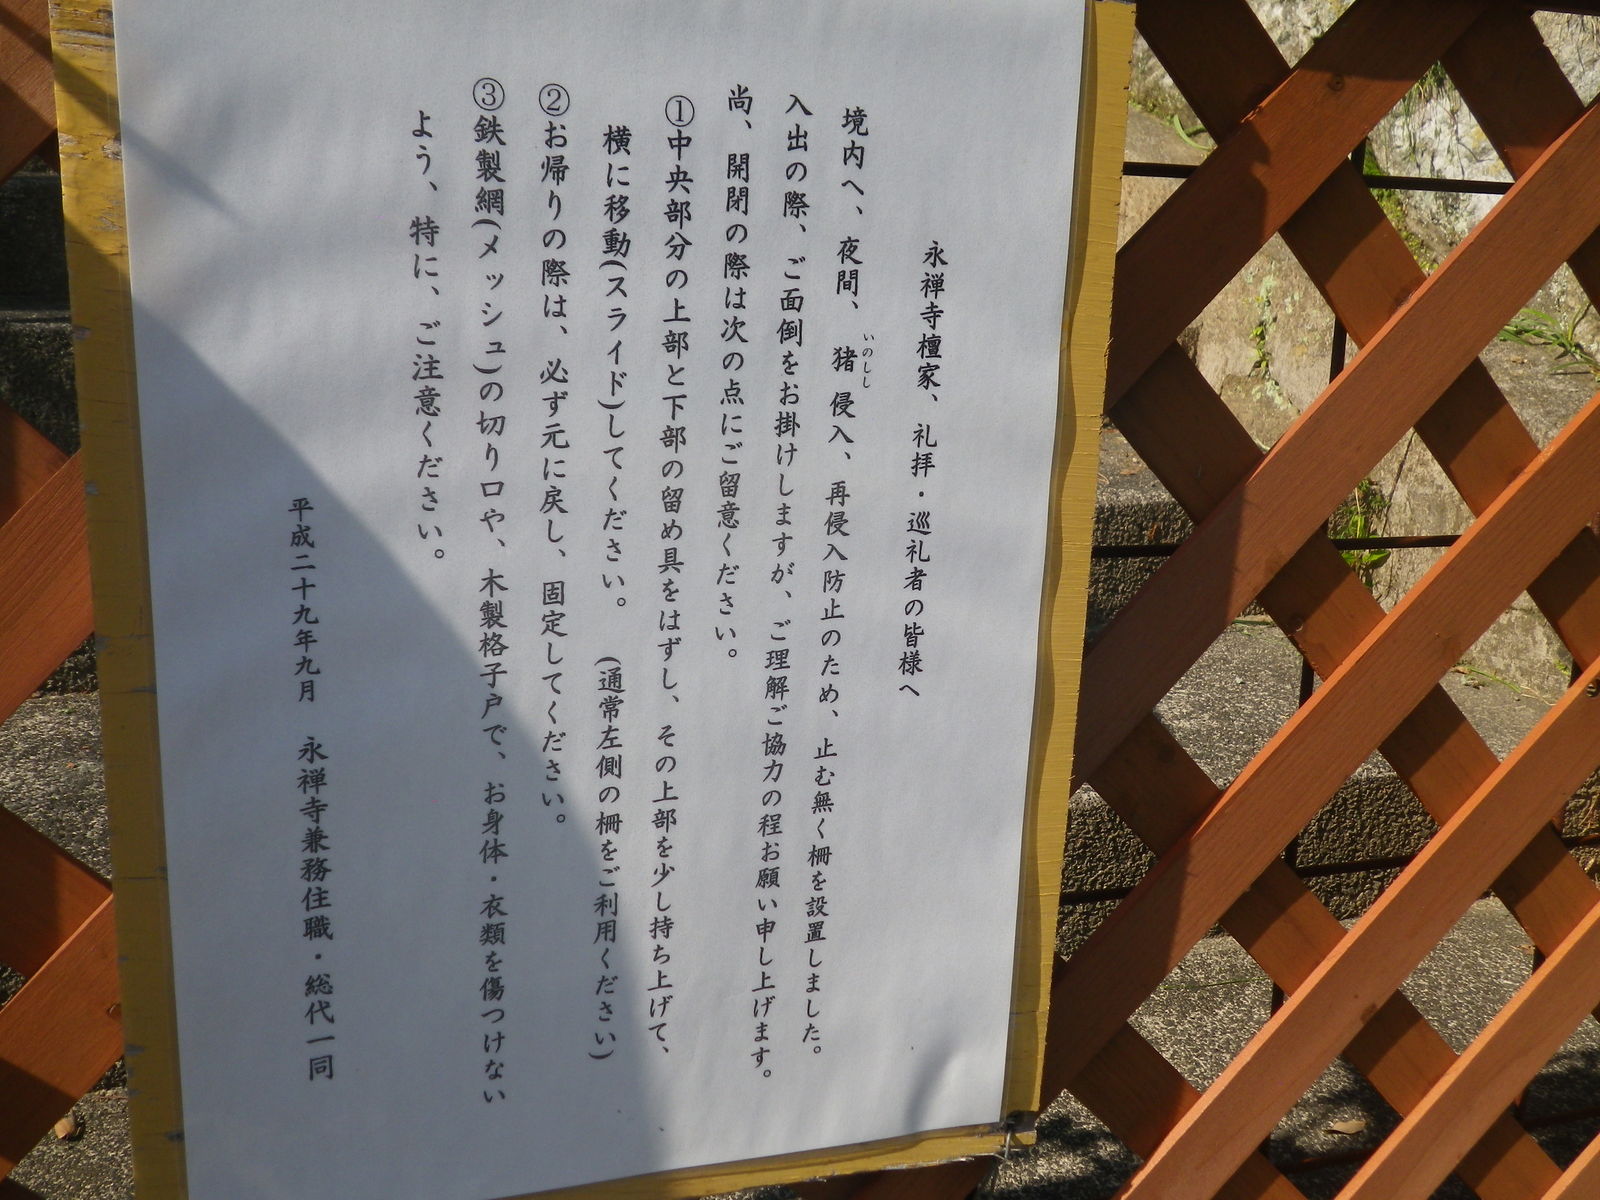 永禅寺檀家、礼拝・巡礼者の皆様へ
境内へ、夜間、猪侵入、再侵入防止のため、止む無く柵を設置しました。
いのしし
入出の際、ご面倒をお掛けしますが、ご理解ご協力の程お願い申し上げます。
尚、開閉の際は次の点にご留意ください。
①中央部分の上部と下部の留め具をはずし、その上部を少し持ち上げて、
横に移動(スライド)してください。(通常左側の柵をご利用ください)
②お帰りの際は、必ず元に戻し、固定してください。
③鉄製網(メッシュ)の切り口や、木製格子戸で、お身体・衣類を傷つけない
よう、特に、ご注意ください。
平成二十九年九月 永禅寺兼務住職・総代一同